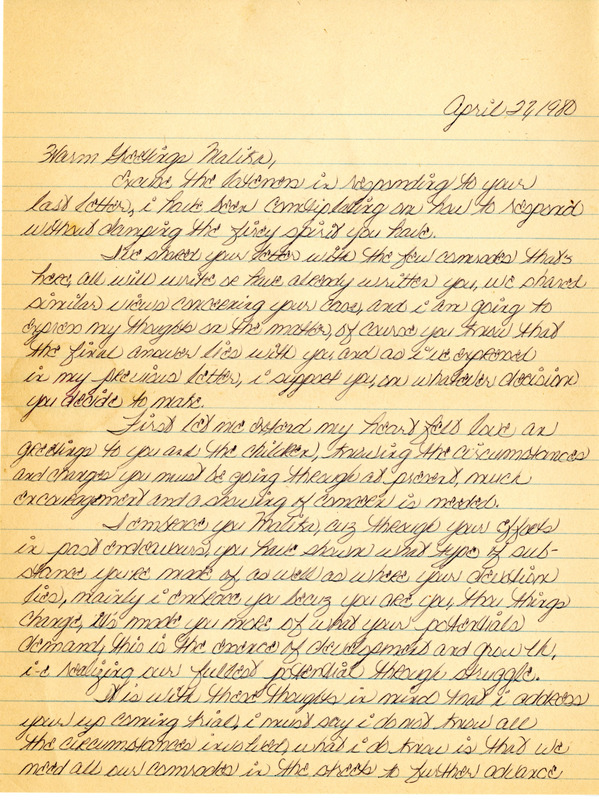 April 27, 1980
Warm Greetings Malika,
Excuse the lateness in responding to your
last letter, i have been contemplating on how to respond
without damping the firey spirit you have.
I've shared your letter with the few comrades that's
here, all will write or have already written you, we shared
similar views concerning your case, and i am going to
express my thoughts on the matter, of course you know that
the final answer lies with you, and as i've expressed
in my previous letter, i support you, on whatever decision
you decide to make.
First let me extend my heart felt love an
greetings to you and the children, knowing the circumstances
and changes you must be going through at present, much
encouragement and a showing of concern is needed.
I embrace you Malika, cuz through your efforts
in past endeavours, you have shown what type of sub-
stance you're made of, as well as where your devotion
lies, mainly i embrace you becuz you are you, thou things
change, its made you more of what your potentials
demand, this is the essence of development and growth,
i-e realizing our fullest potential through struggle.
It is with these thoughts in mind that i address
your up coming trial, i must say i do not know all
the circumstances involved, what i do know is that we
need all our comrades in the streets to further advance